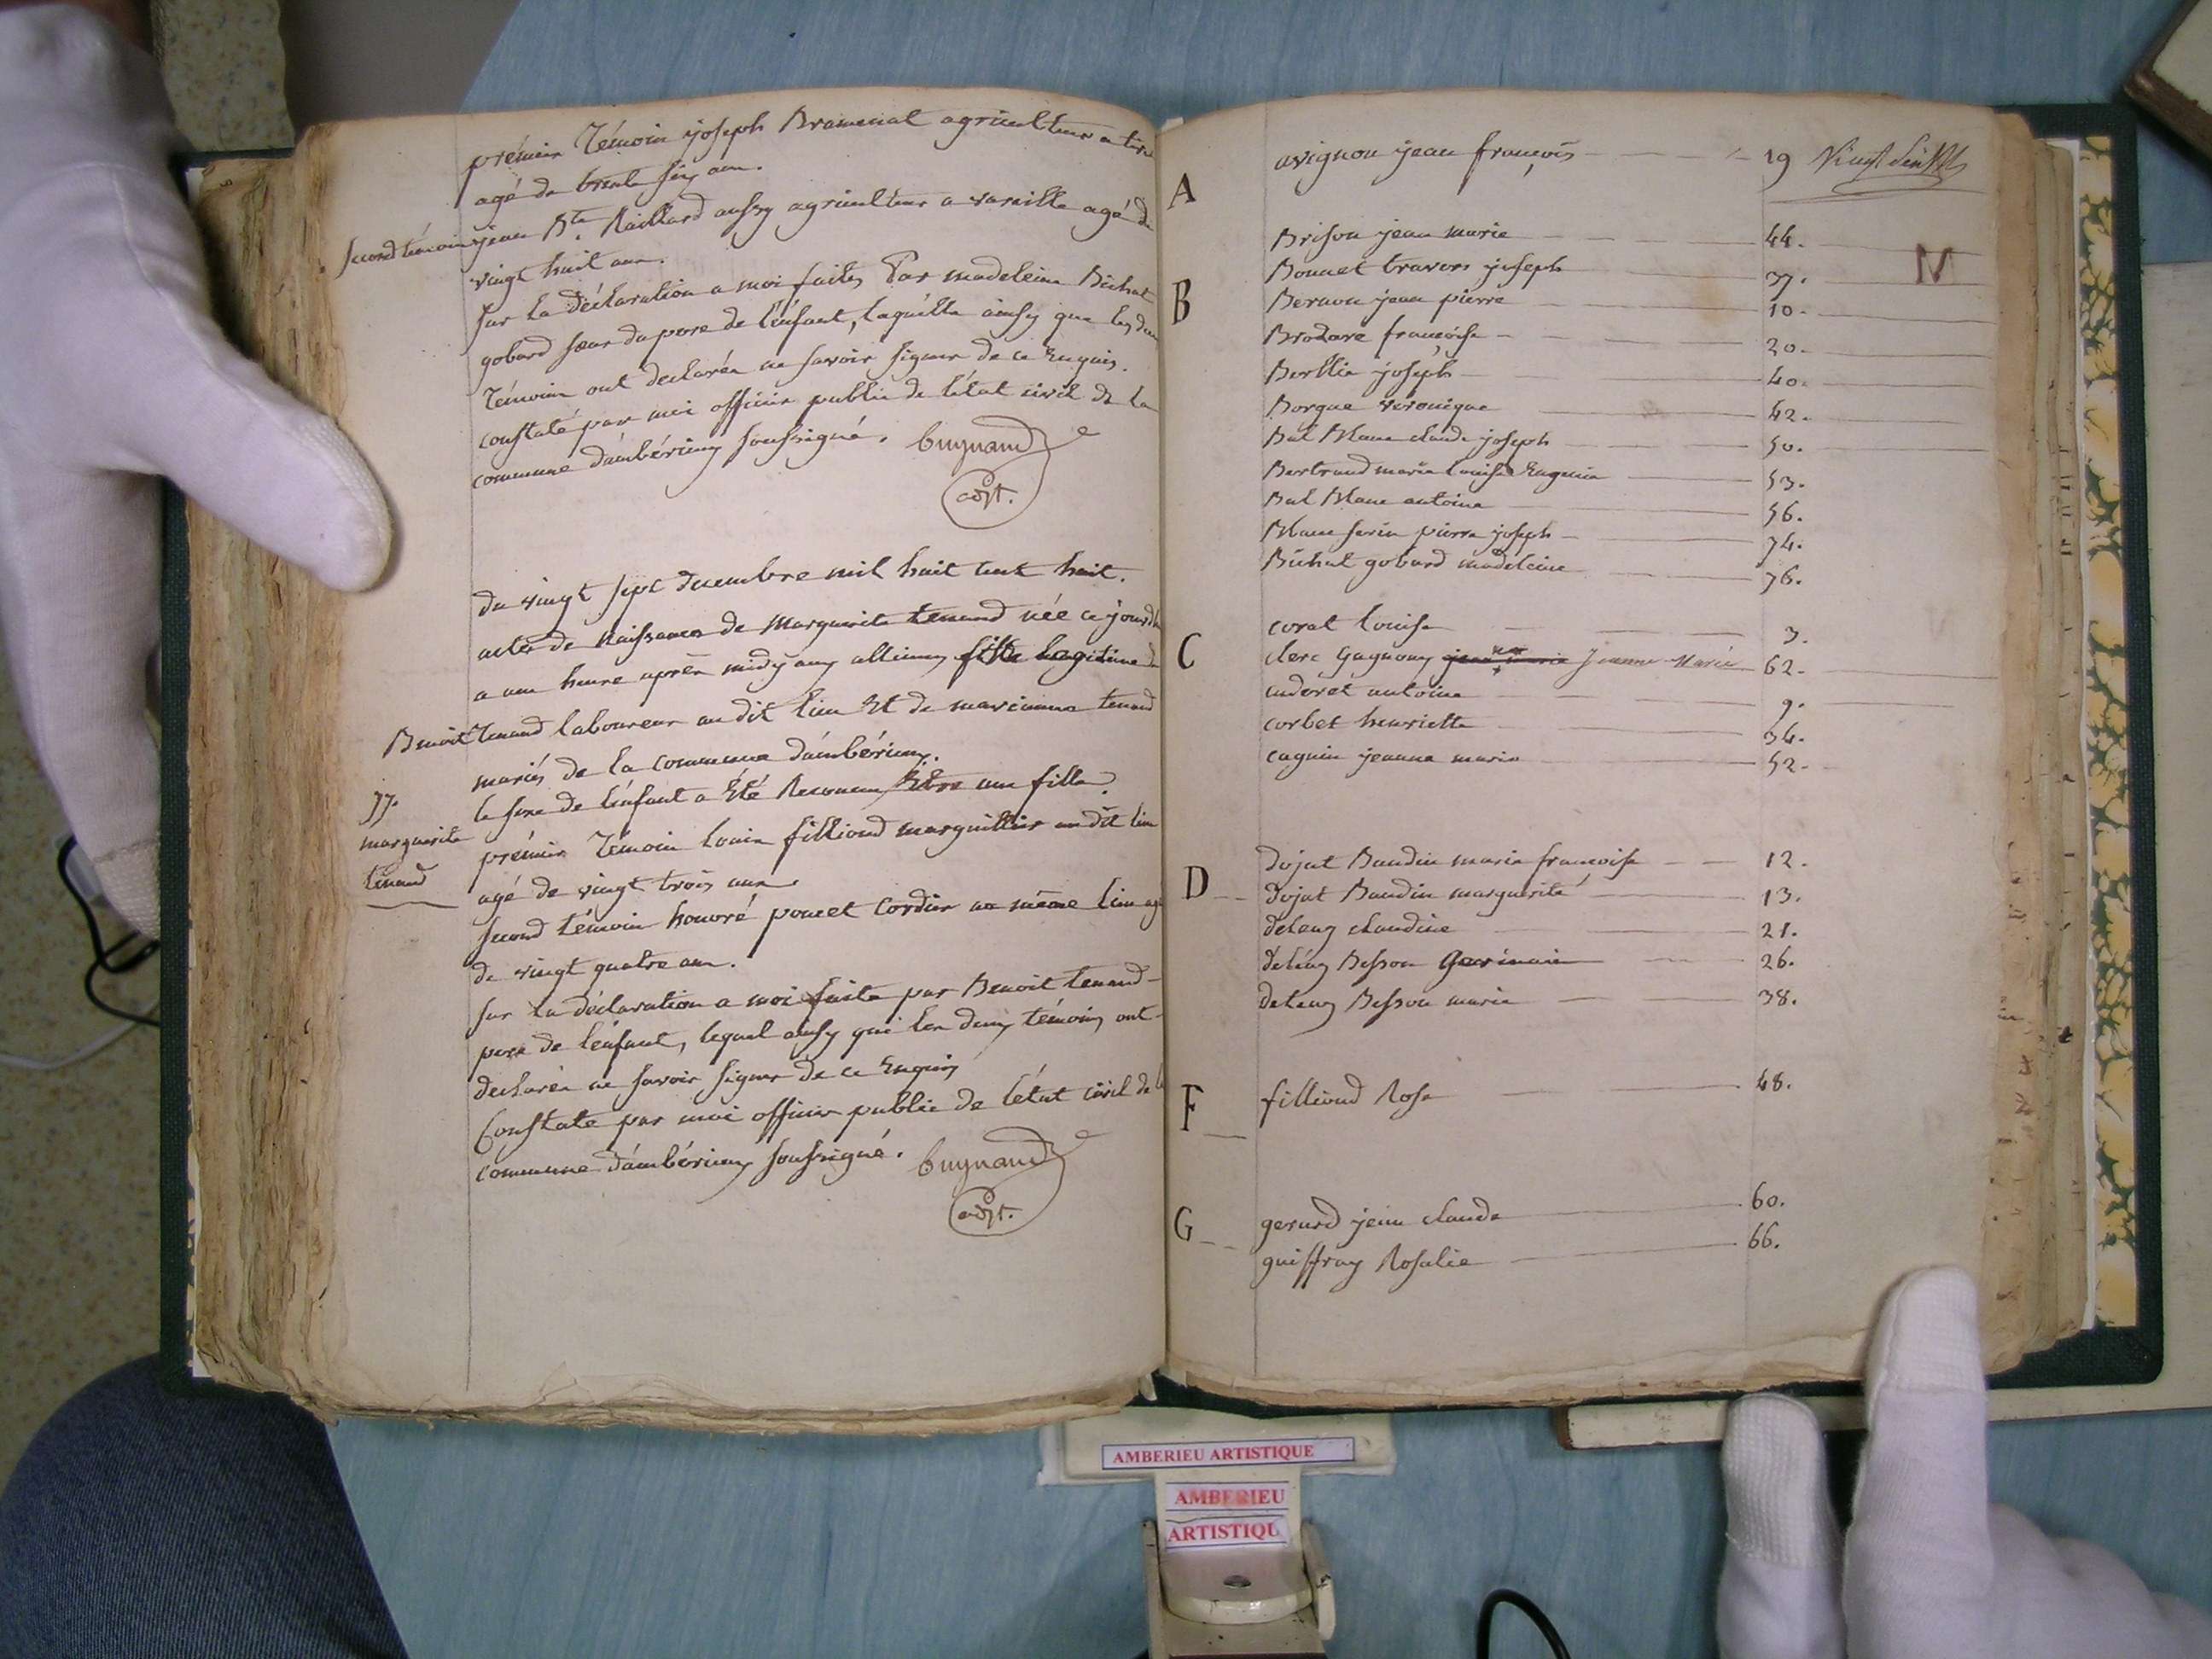 prémier Témoin joseph Bramerel agriculteur a tiré
agé de trente six ans.
second témoin jean Bte. Raillard aussy agriculteur a vareille agé de
vingt huit ans.
sur la déclaration a moi faites Par madeleine Bichat
gobard sœur du pere de l'énfant, laquélle ainsy que les deux
Témoins ont declarés ne savoir signer de ce Enquis.
constaté par moi officier public de l'état civil de la
commune d'ámbérieux soussigné. bugnand
adjt.
du vingt sept decembre mil huit cent huit.
acte de Naissance de Marguerite tenand née ce jourd'hui
a une heure après midy aux allimes fille legitime de
Benoit tenand laboureur au dit lieu Et de marianne tenand
mariés de la commune d'ámbérieux.
le sexe de l'énfant a Été Reconnu Être une fille
77.
marguerite
tenand
prémier Témoin Louis filliond marguillier au dit lieu
agé de vingt trois ans
second témoin honoré poncet Cordier au même lieu agé
de vingt quatre ans.
sur la déclaration a moi faite par Benoit tenand
pere de l'énfant, lequel ainsy que les deux témoins ont
declarés ne savoir signer de ce Enquis
Constaté par moi officier public de l'état civil de la
commune d'ámbérieux soussigné. bugnand
adjt.
A
avignon jean françois 19 Vingt Sept
N
B
Brison jean marie 44.
Bonnet travers joseph 37.
Bernou jean pierre 10.
Brodare françoise 20.
Berthie joseph 40.
Borgne veronique 42.
Bal Blanc claude joseph 50.
Bertrand marie Louise Eugenie 53.
Bal Blanc antoine 56.
Blanc serin pierre joseph 74.
Bichat gobard madeleine 76.
C
corat Louise 3.
clerc Gagnoux jean marie Jeanne Marie 62.
cuderet antoine 9.
corbet henriette 34.
cagnin jeanne marie 52.
D
dojat Baudin marie francoise 12.
dojat Baudin marguerite 13.
deleuz claudine 21.
deleuz Besson Germain 26.
deleuz Besson marie 38.
F
filliond Rose 48.
G
gerard jean claude 60.
guiffray Rosalie 66.
AMBERIEU ARTISTIQUE
AMBERIEU
ARTISTIQU